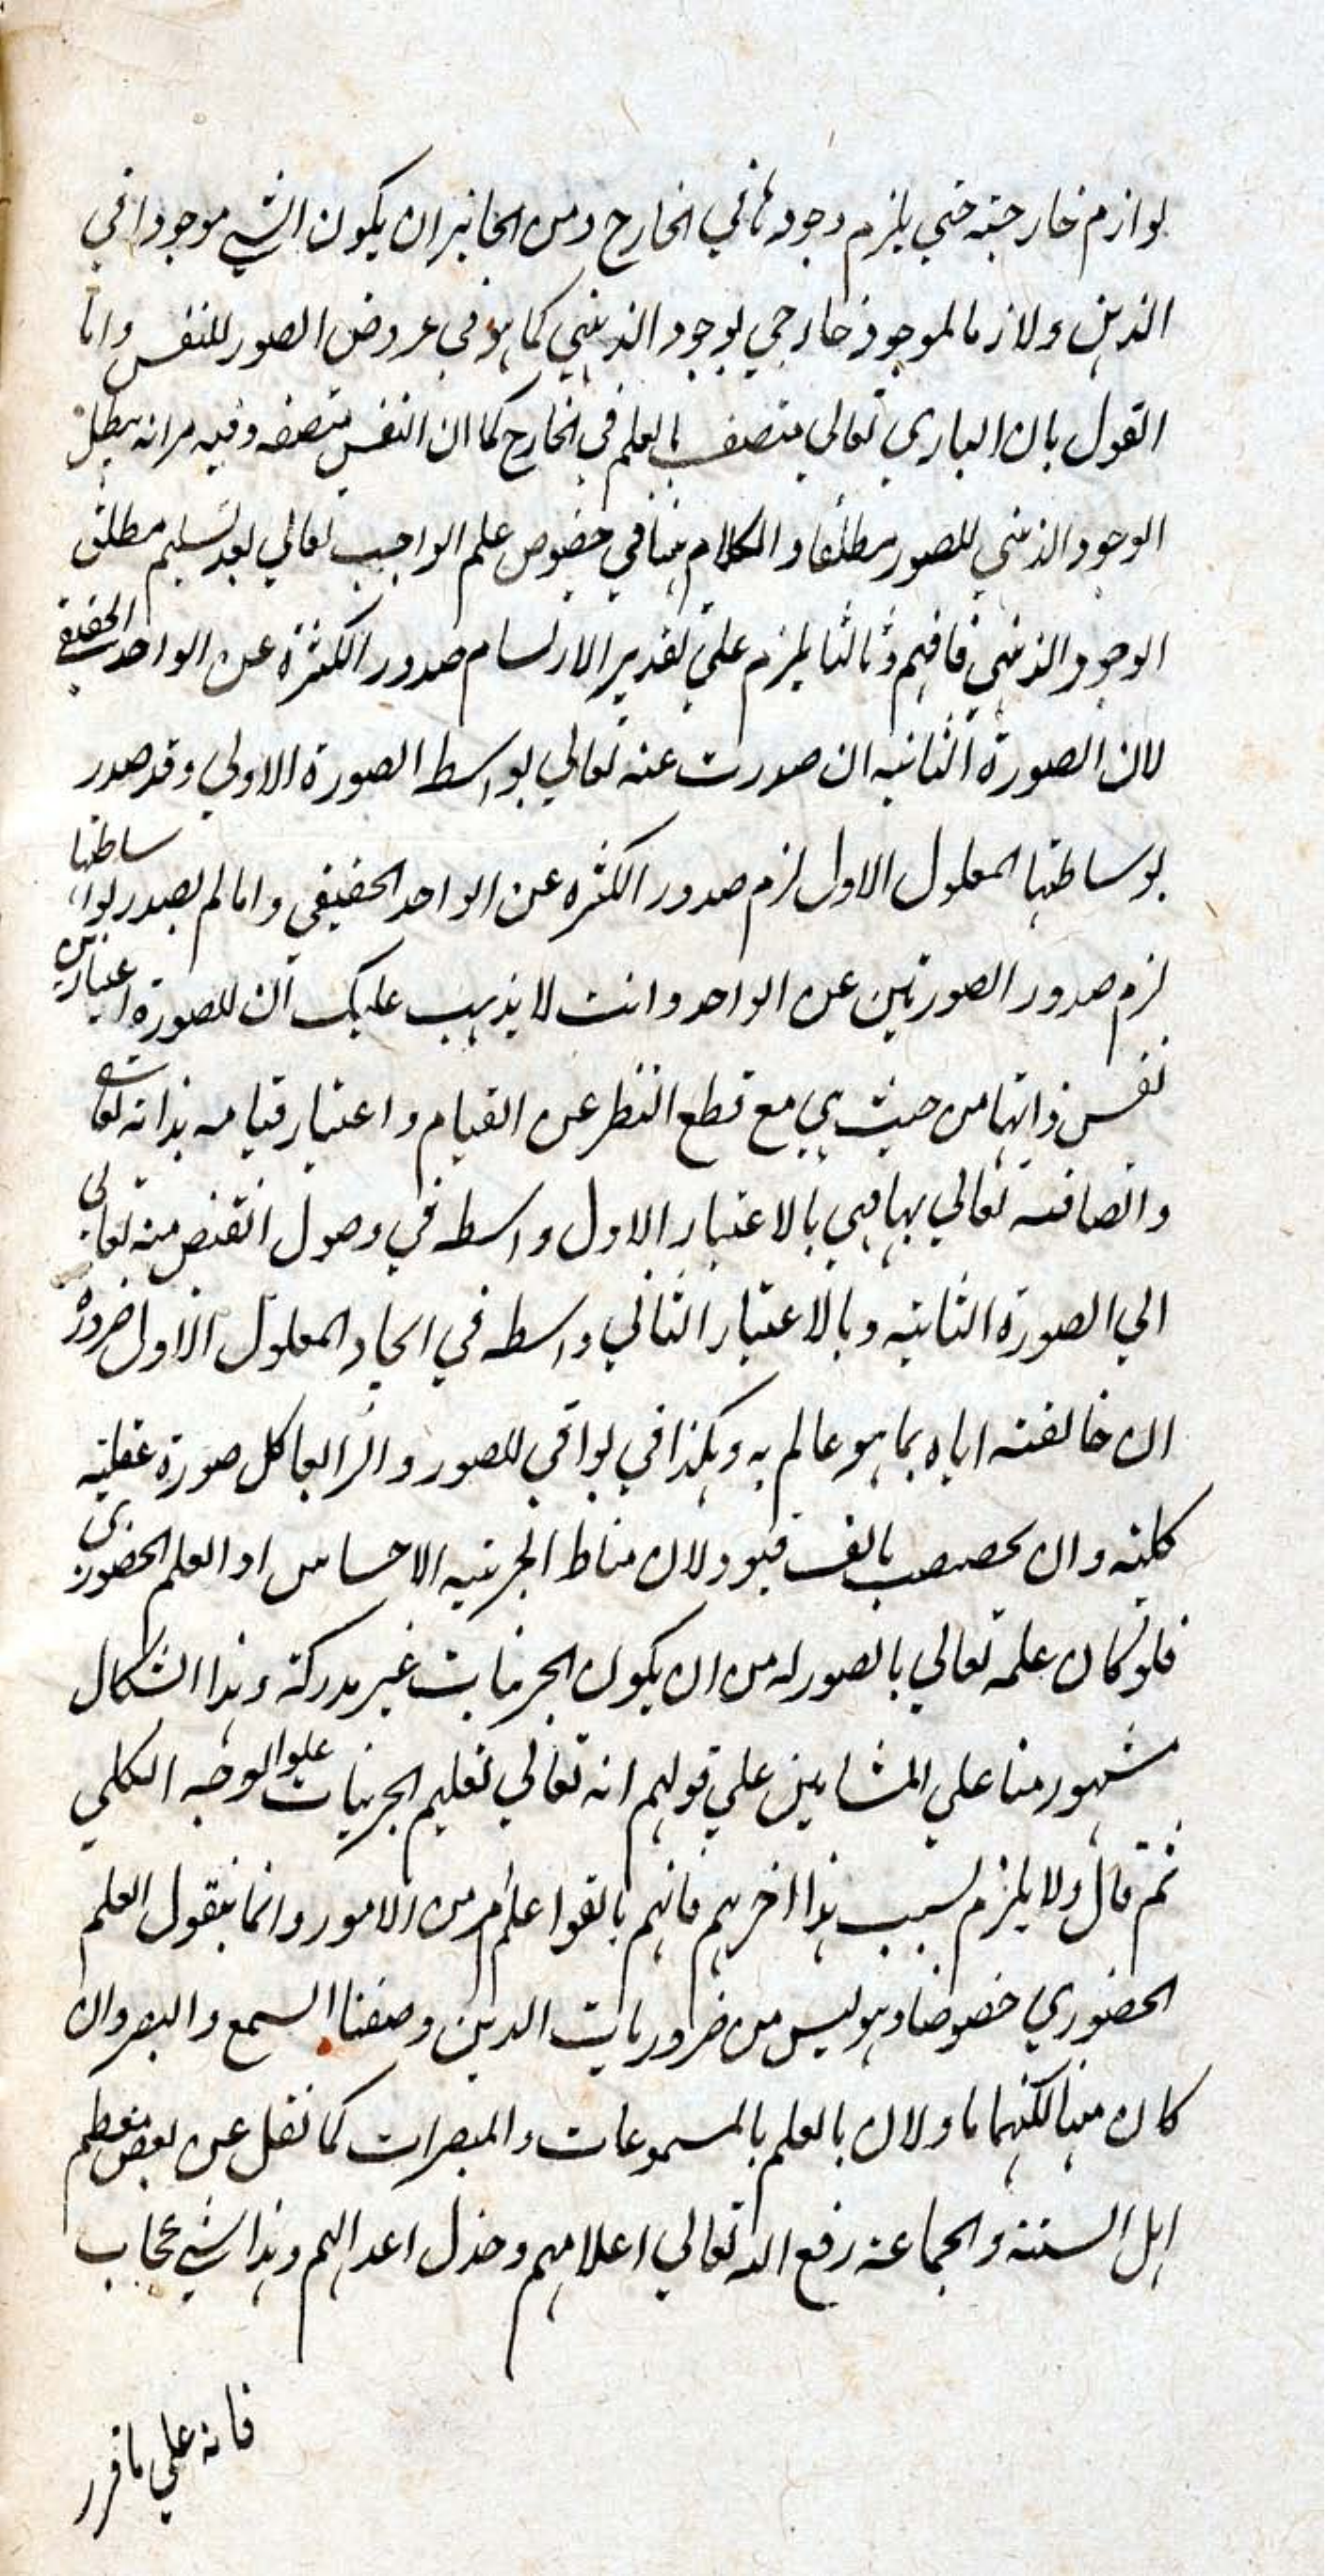 لوازم خارجيه حتي يلزم وجودها في الخارج ومن الجائز ان يكون الشي موجودا في
الذهن ولازما لموجود خارجي لوجود الذهني كما هو في عروض الصور للنفس واما
القول بان الباري تعالي متصف بالعلم في الخارج كما ان النفس متصفه وفيه مر انه يبطل
الوجود الذهني للصور مطلقا والكلام هنا في خصوص علم الواجب تعالي بعد تسليم مطلق
الوجود الذهني فافهم وثالثا يلزم علي تقدير الارتسام صدور الكثرة عن الواحد الحقيقي
لان الصورة الثانيه ان صدرت عنه تعالي بواسط الصورة الاولي وقد صدر
بوساطتها المعلول الاول لزم صدور الكثره عن الواحد الحقيقي واما لم يصدر بوساطتها
لزم صدور الصورتين عن الواحد وانت لا يذهب عليك ان للصورة اعتبارين
نفس ذاتها من حيث هي مع قطع النظر عن القيام و اعتبار قيامه بذاته تعالي
واتصافه تعالي بها فهي بالاعتبار الاول واسطه في وصول الفيض منه تعالي
الي الصورة الثانيه وبالاعتبار الثاني واسطه في ايجاد المعلول الاول ضرورة
ان خالفته اياه بما هو عالم به وهكذا في بواقي للصور والرابعا كل صورة عقليه
كليه وان يخصص بالف قيود لان مناط الجزئيه الاحساس او العلم الحضوري
فلو كان علمه تعالي بالصور لزم من ان يكون الجزئيات غير مدركة وهذا اشكال
مشهور منا علي المشايين علي قولهم انه تعالي تعليم الجزئيات علوا لوجه الكلي
ثم قال ولا يلزم لسبب هذا اخريهم فانهم بالقوا علم من الامور وانما بيقول العلم
الحضوري خصوصا وهو ليس من ضروريات الدين وصفتا السمع والبصر وان
كان منها لكنهما ماولان بالعلم بالمسموعات والمبصرات كما نقل عن بعض معظم
اهل السنته والجماعه رفع الله تعالي اعلامهم وخذل اعدائهم وهذا شي عجاب
فانه علي ما قرر